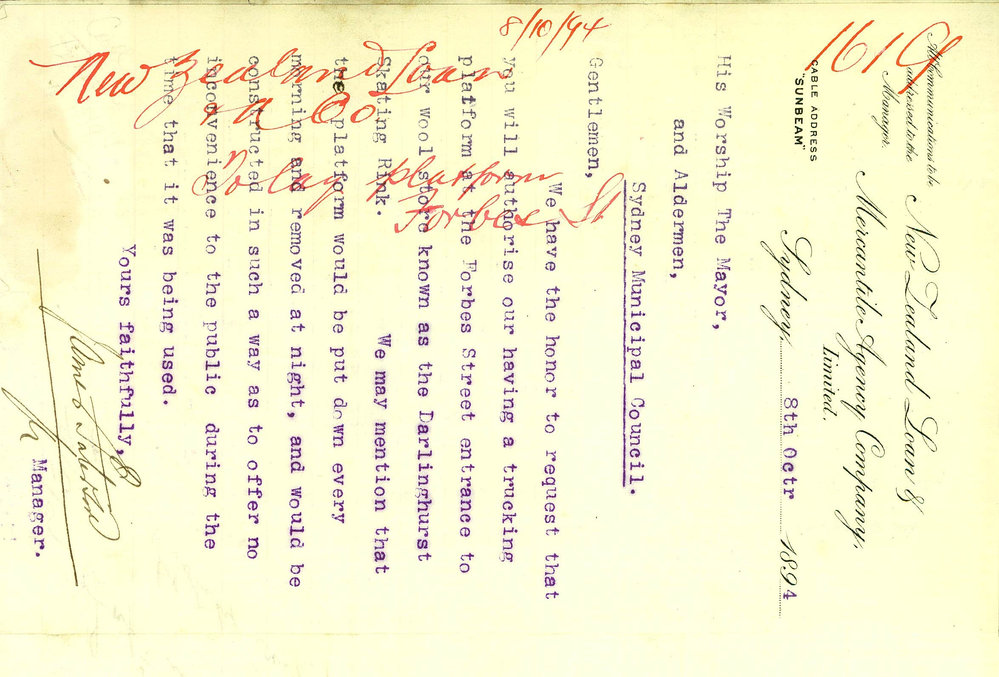 1619
All communications to be
addressed to the
Manager.
CABLE ADDRESS
"SUNBEAM"
New Zealand Loan &
Mercantile Agency Company,
Limited.
Sydney, 8th Octr 1894
His Worship The Mayor,
and Aldermen,
Sydney Municipal Council.
8/10/94
Gentlemen,
We have the honor to request that
you will authorise our having a trucking
platform at the Forbes Street entrance to
our wool store known as the Darlinghurst
Skating Rink. We may mention that
the platform would be put down every
morning and removed at night, and would be
constructed in such a way as to offer no
incoovenience to the public during the
time that it was being used.
Yours faithfully,
Manager.
New Zealand Loan
& A Co
To lay platform
Forbes St